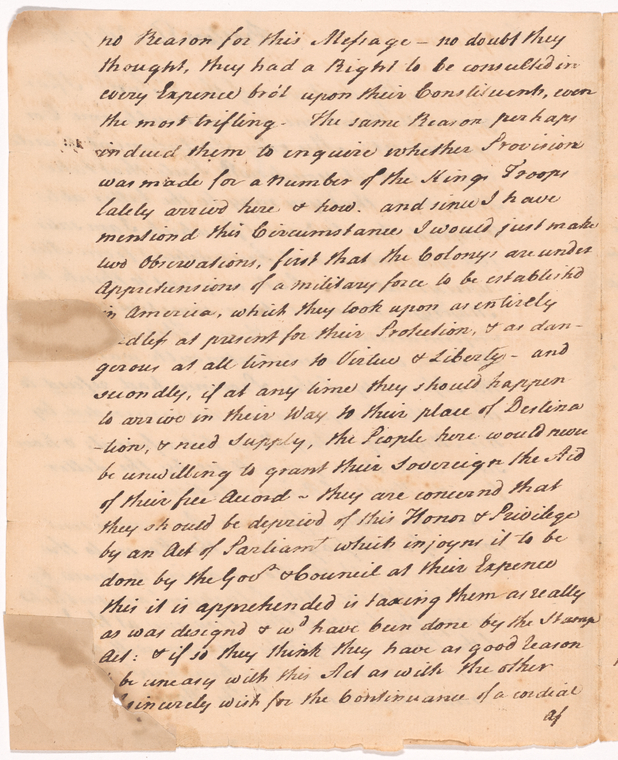 no Reason for this Message – no doubt they
thought, they had a Right to be consulted in
every Expence bro't upon their Constituents, even
the most trifling – The same Reason perhaps
induced them to enquire whether Provision
was made for a number of the Kings Troops
lately arrivd here & how. and since I have
mentiond this Circumstance I would just make
two Observations, first that the Colonys are under
Apprehensions of a military force to be establishd
in America, which they look upon as entirely
-dless at present for their Protection, & as dan-
gerous at all times to Virtue & Liberty – and
secondly, if at any time they should happen
to arrive in their Way to their place of Destina
-tion, & need Supply, the People here would never
be unwilling to grant their Sovereign the Aid
of their free Accord – they are concernd that
they should be deprivd of this Honor & Privilege
by an Act of Parliamt which injoyns it to be
done by the Govr & Council at their Expence
this it is apprehended is taxing them as really
as was designd & wd have been done by the Stamp
Act: & if so they think they have as good reason
be uneasy with this Act as with the other
sincerely wish for the Continuance of a cordial
af